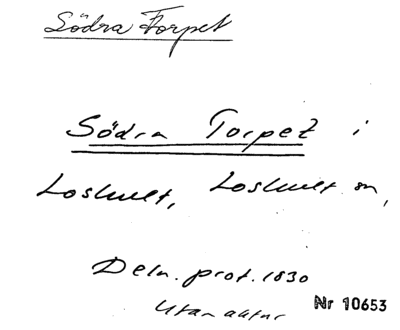 Södra Torpet
Södra Torpet i
Loshult, Loshult sn,
Deln. prot. 1830
utan aktnr
Nr 10653